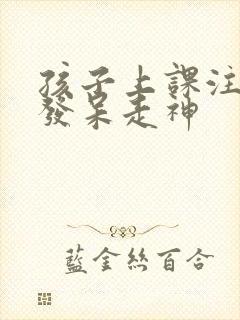 孩子上課注
發呆走神
藍金絲百合